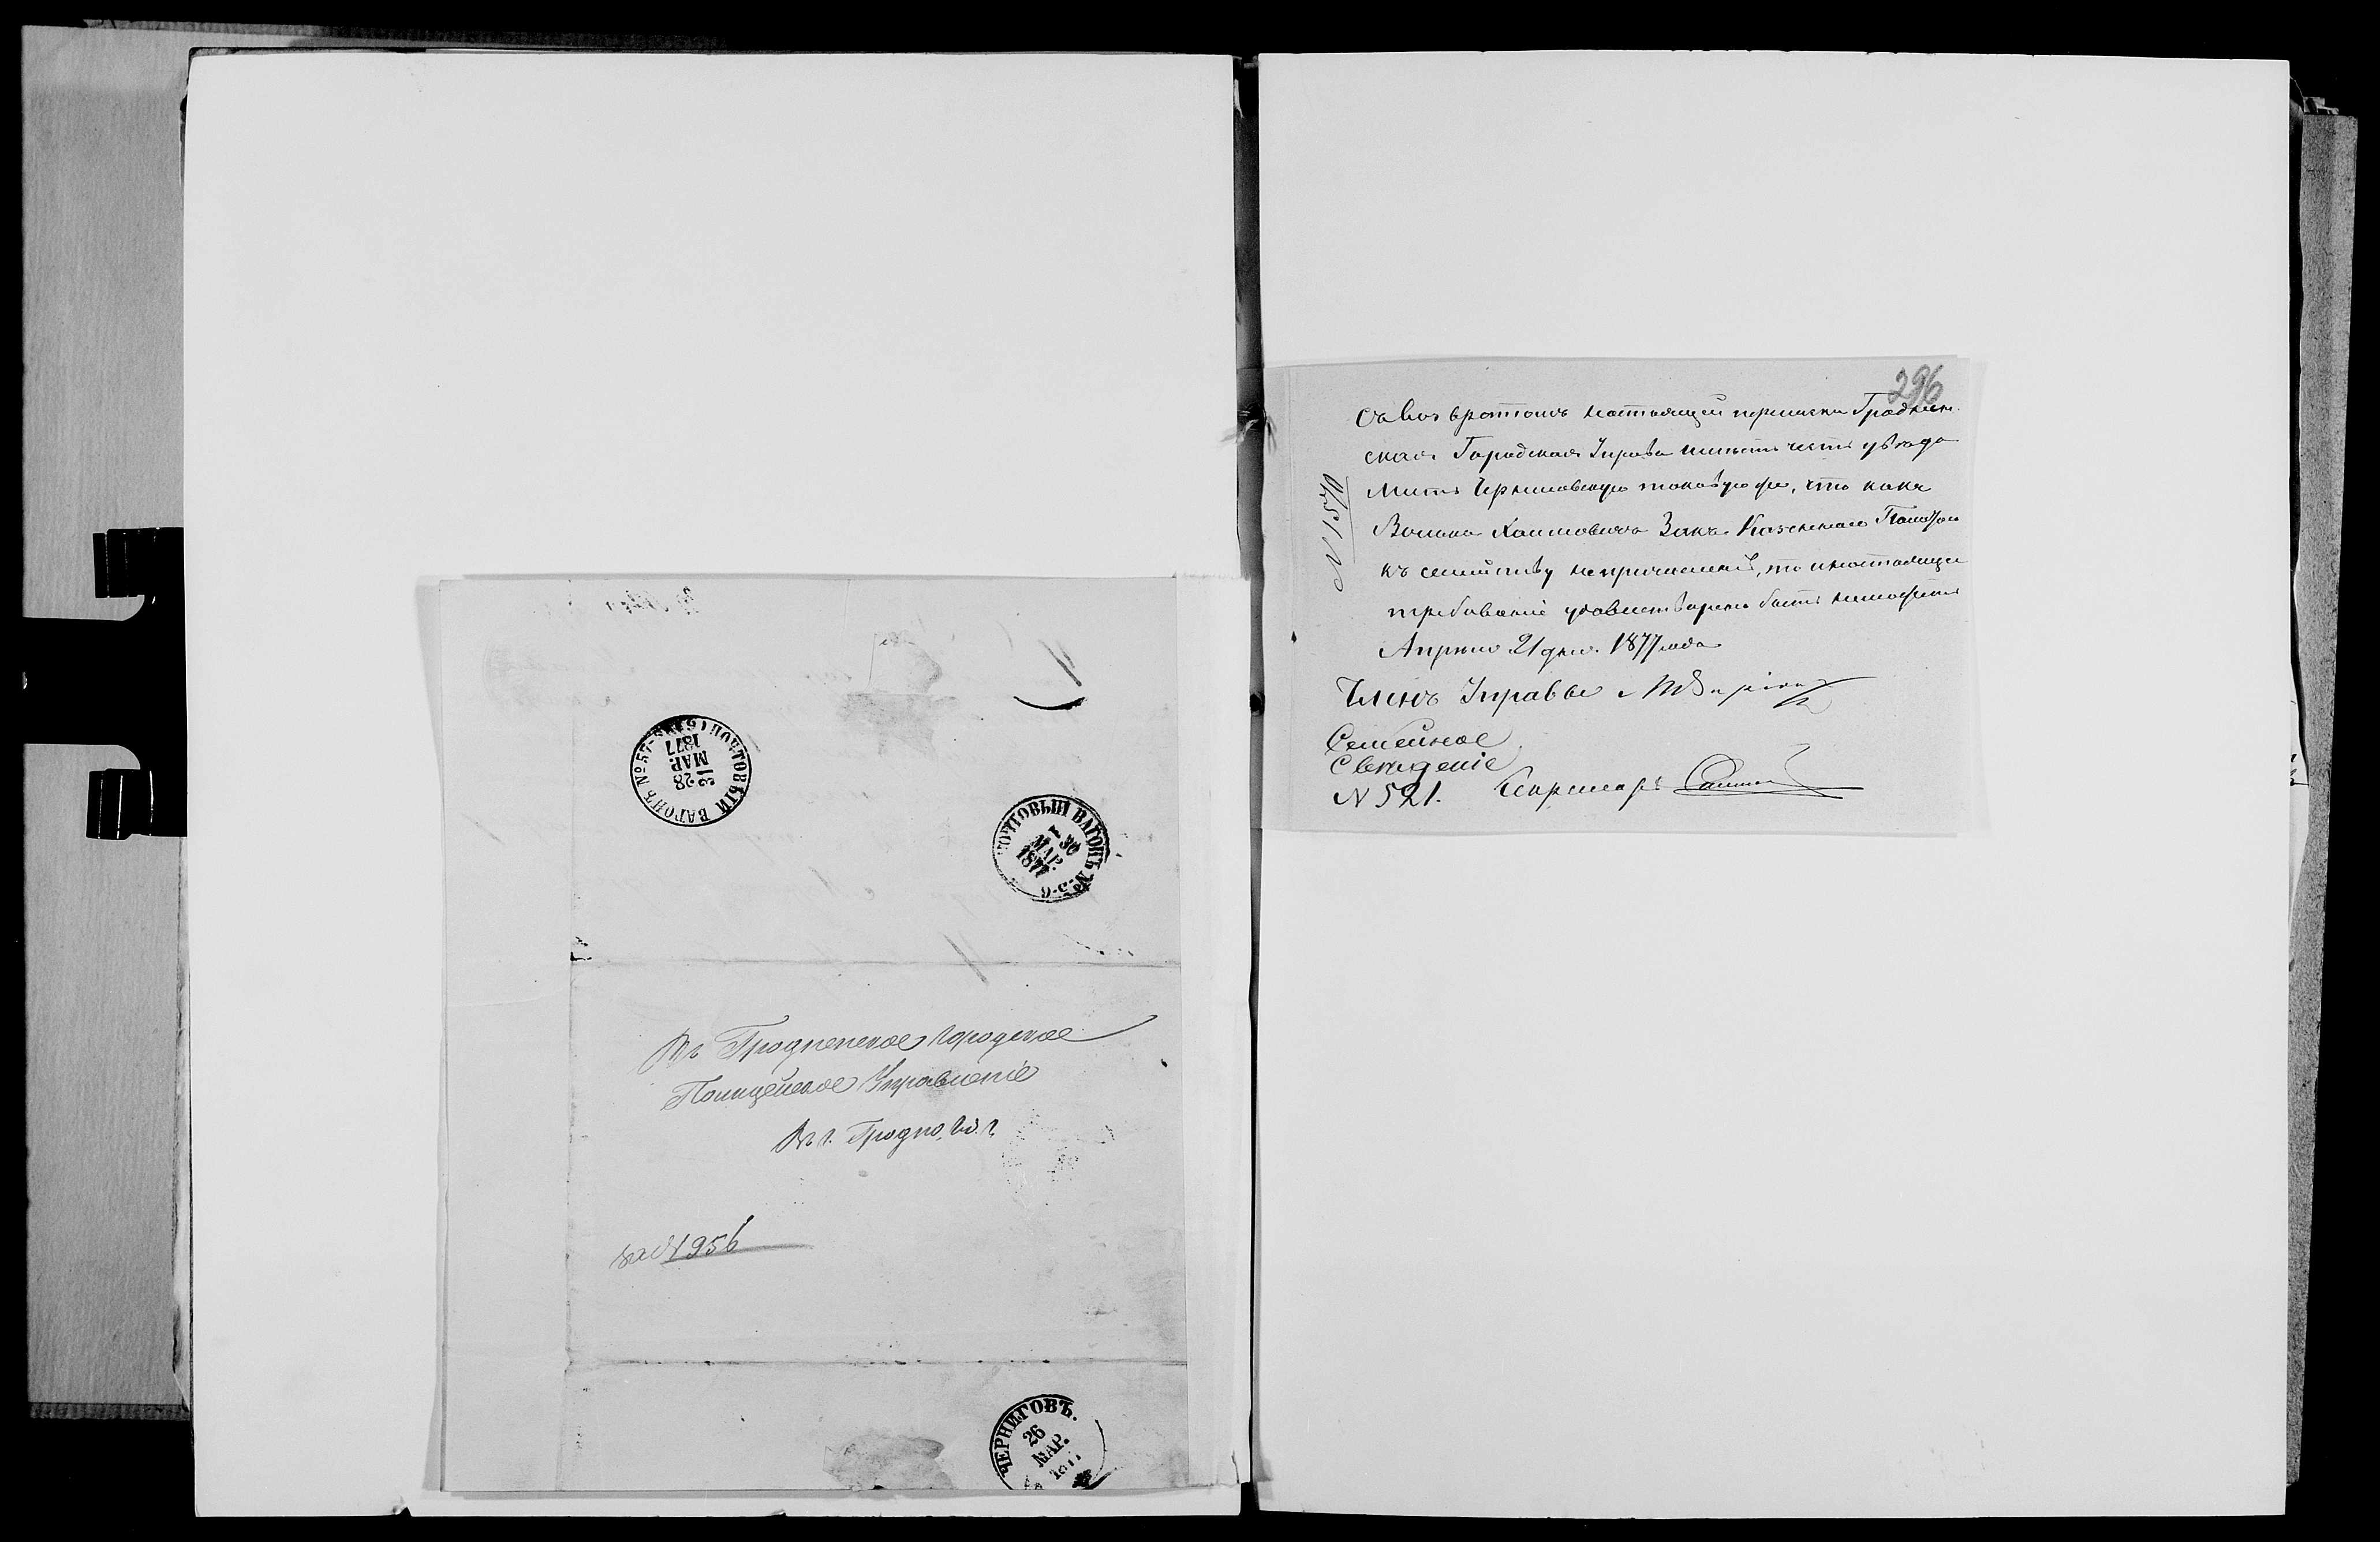 ПОЧТОВЫЙ ВАГОНЪ № 57-58
28
МАР.
1877
ПОЧТОВЫЙ ВАГОНЪ №
30
МАР.
1877
Въ Гродненское Городское
Полицейское Управленіе
Въ г. Гродно
1956
ЧЕРНИГОВЪ.
26
МАР.
296
Съ возвратомъ настоящей переписки Гроднен-
ская Городская Управа имѣетъ честь уведо
мить Черниговскую таковую же, что какъ
Хаимовичъ Закъ Казеннаго Палатою
къ семейству непричисленъ, то и настоящее
требованіе удовлетворено быть неможетъ
Апрѣля 21 дня. 1877 года
№ 1570
Членъ Управы
Семейное
Сведеніе
№ 521.
Секретарь